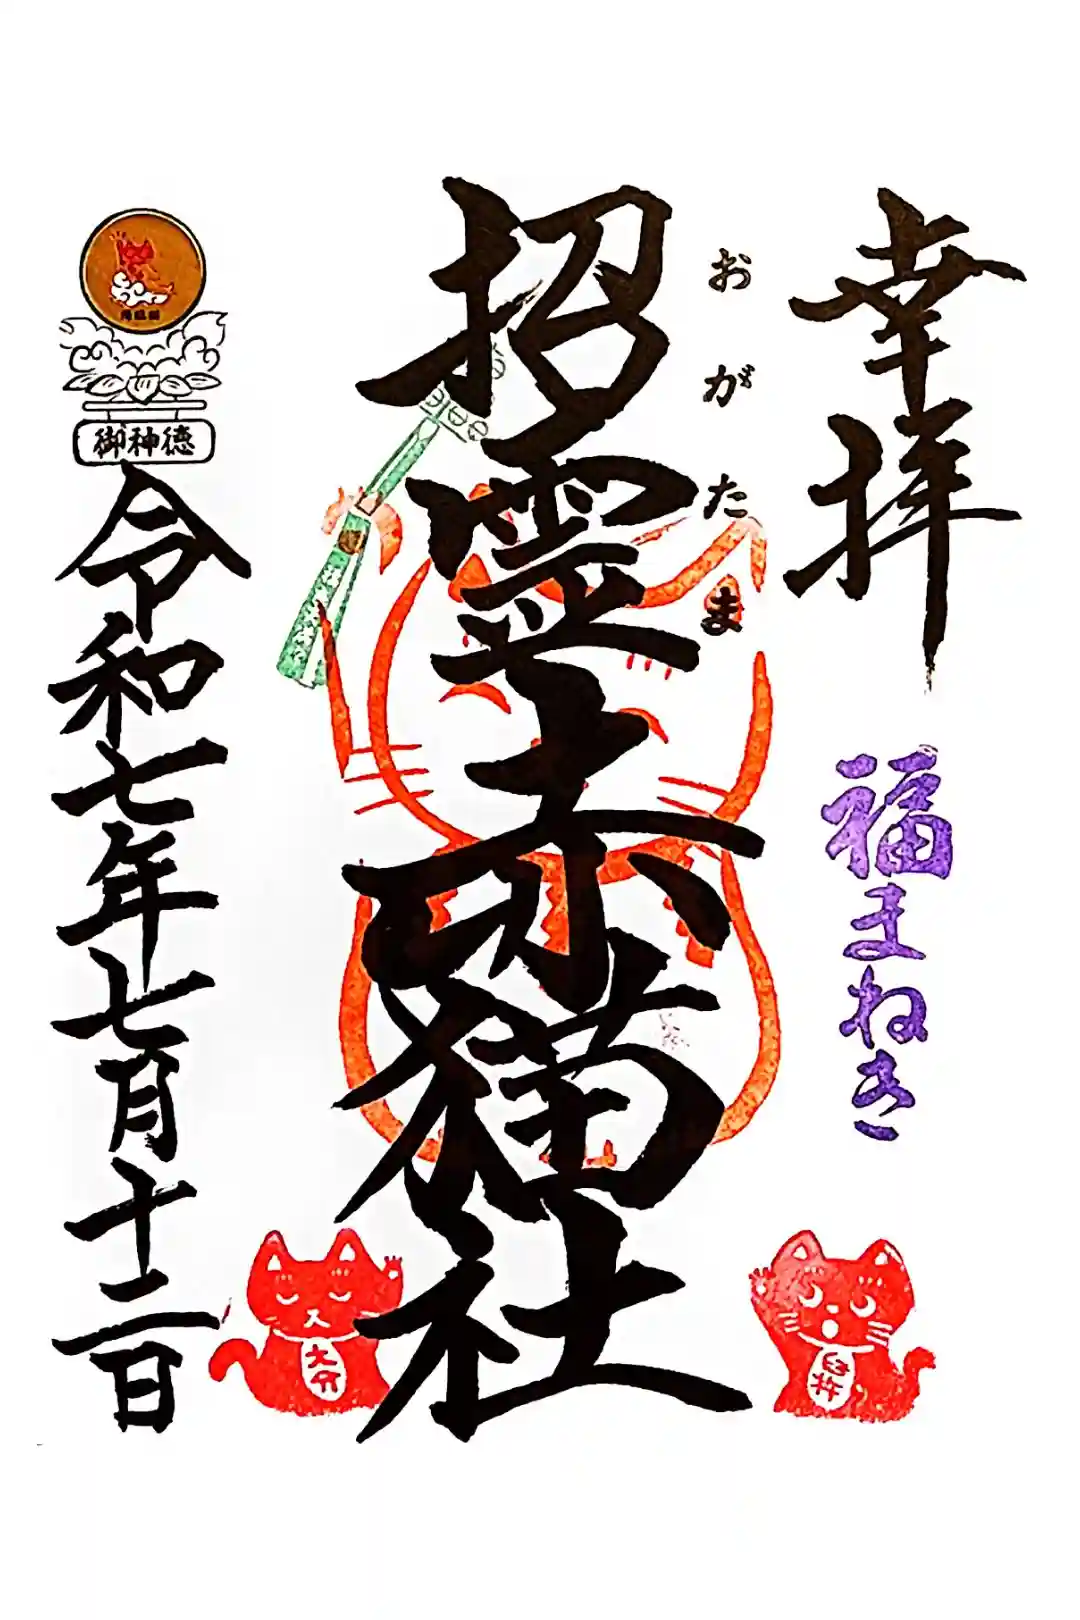 幸拝
福まねき
おがたま
招霊赤猫社
御神徳
令和七年七月十二日
大分
臼杵